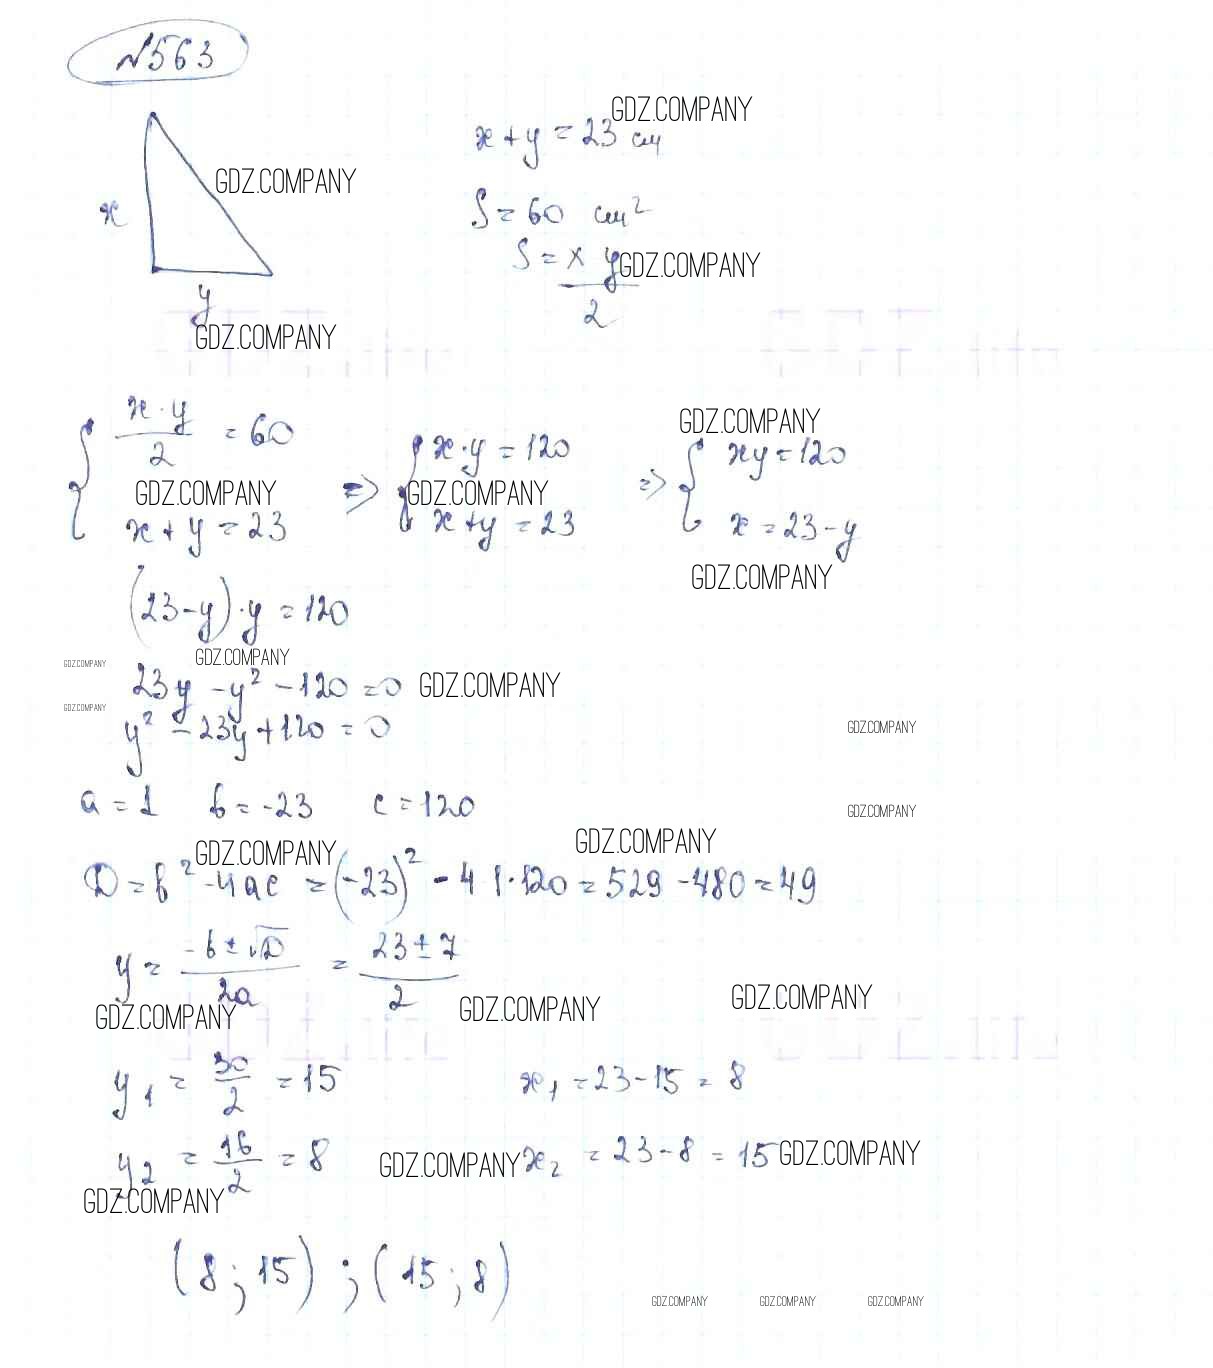 №563
GDZ.COMPANY
x + y = 23 см
GDZ.COMPANY
x
S = 60 см²
S = x y
GDZ.COMPANY
2
y
GDZ.COMPANY
x · y
2
= 60
GDZ.COMPANY
x · y = 120
xy = 120
GDZ.COMPANY
=>
GDZ.COMPANY
=>
x + y = 23
x + y = 23
x = 23 - y
GDZ.COMPANY
(23 - y) · y = 120
GDZ.COMPANY
GDZ.COMPANY
23y - y² - 120 = 0
GDZ.COMPANY
GDZ.COMPANY
y² - 23y + 120 = 0
GDZ.COMPANY
a = 1 b = -23 c = 120
GDZ.COMPANY
GDZ.COMPANY
GDZ.COMPANY
D = b² - 4ac = (-23)² - 4 1 · 120 = 529 - 480 = 49
y = (-b ± √D)/2a = (23 ± 7)/2
GDZ.COMPANY
GDZ.COMPANY
GDZ.COMPANY
y₁ = 30/2 = 15 x₁ = 23 - 15 = 8
y₂ = 16/2 = 8
GDZ.COMPANY
x₂ = 23 - 8 = 15
GDZ.COMPANY
GDZ.COMPANY
(8; 15) ; (15; 8)
GDZ.COMPANY
GDZ.COMPANY
GDZ.COMPANY